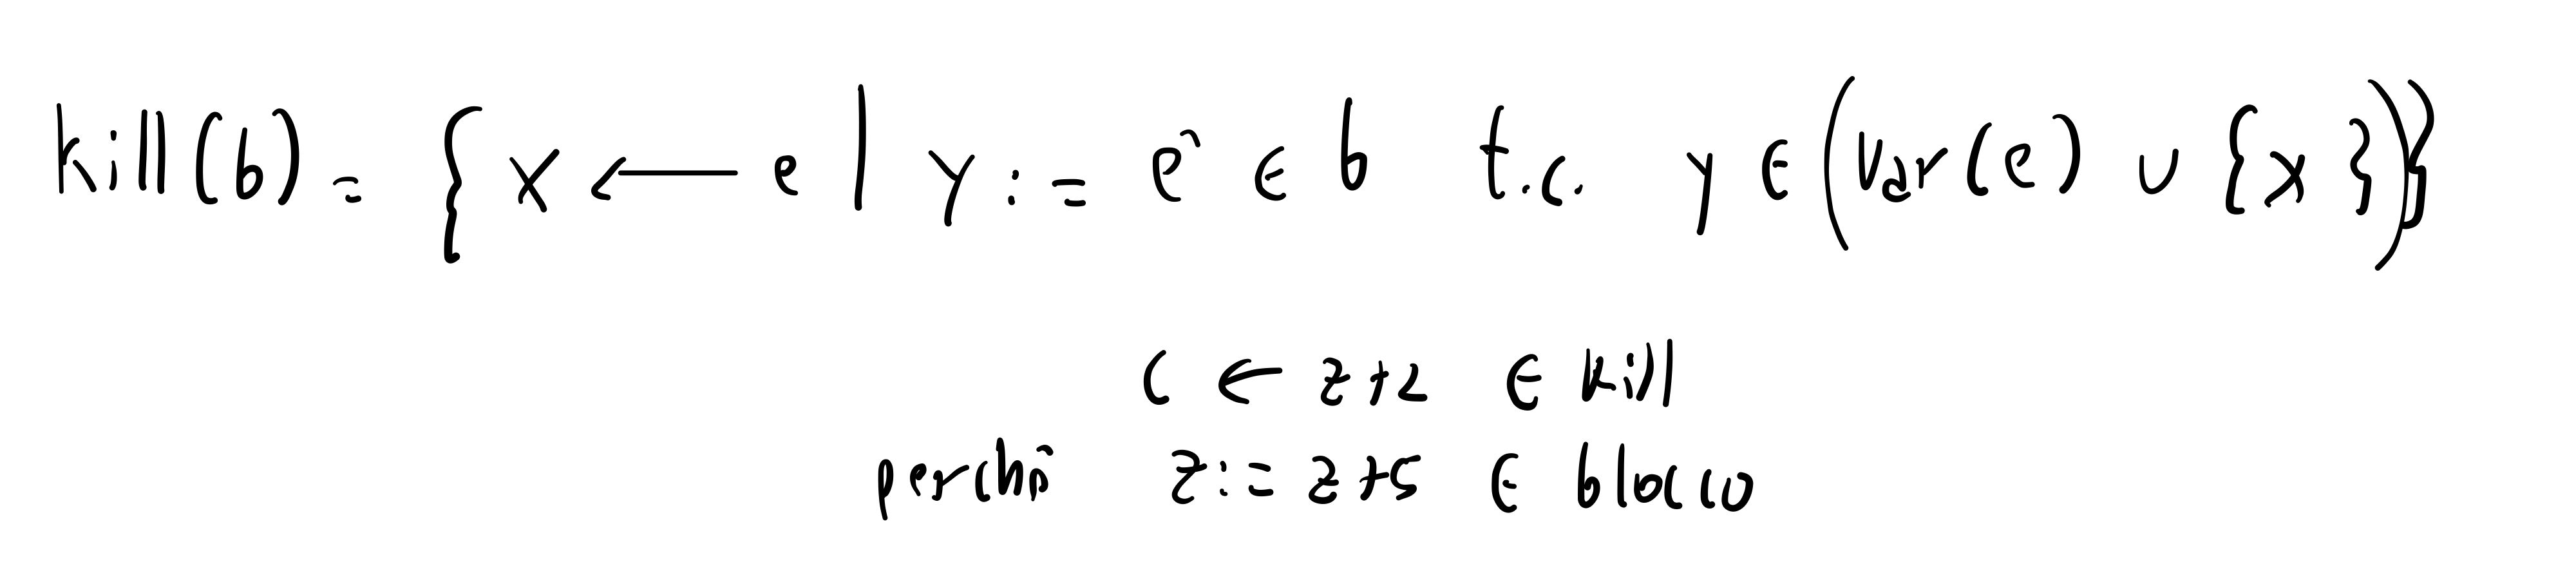 kill(b) = { x ← e | y := e^ ∈ b t.c. y ∈ (Var(e) ∪ {x})}
C ← z+2 ∈ kill
perchè z := z+5 ∈ blocco